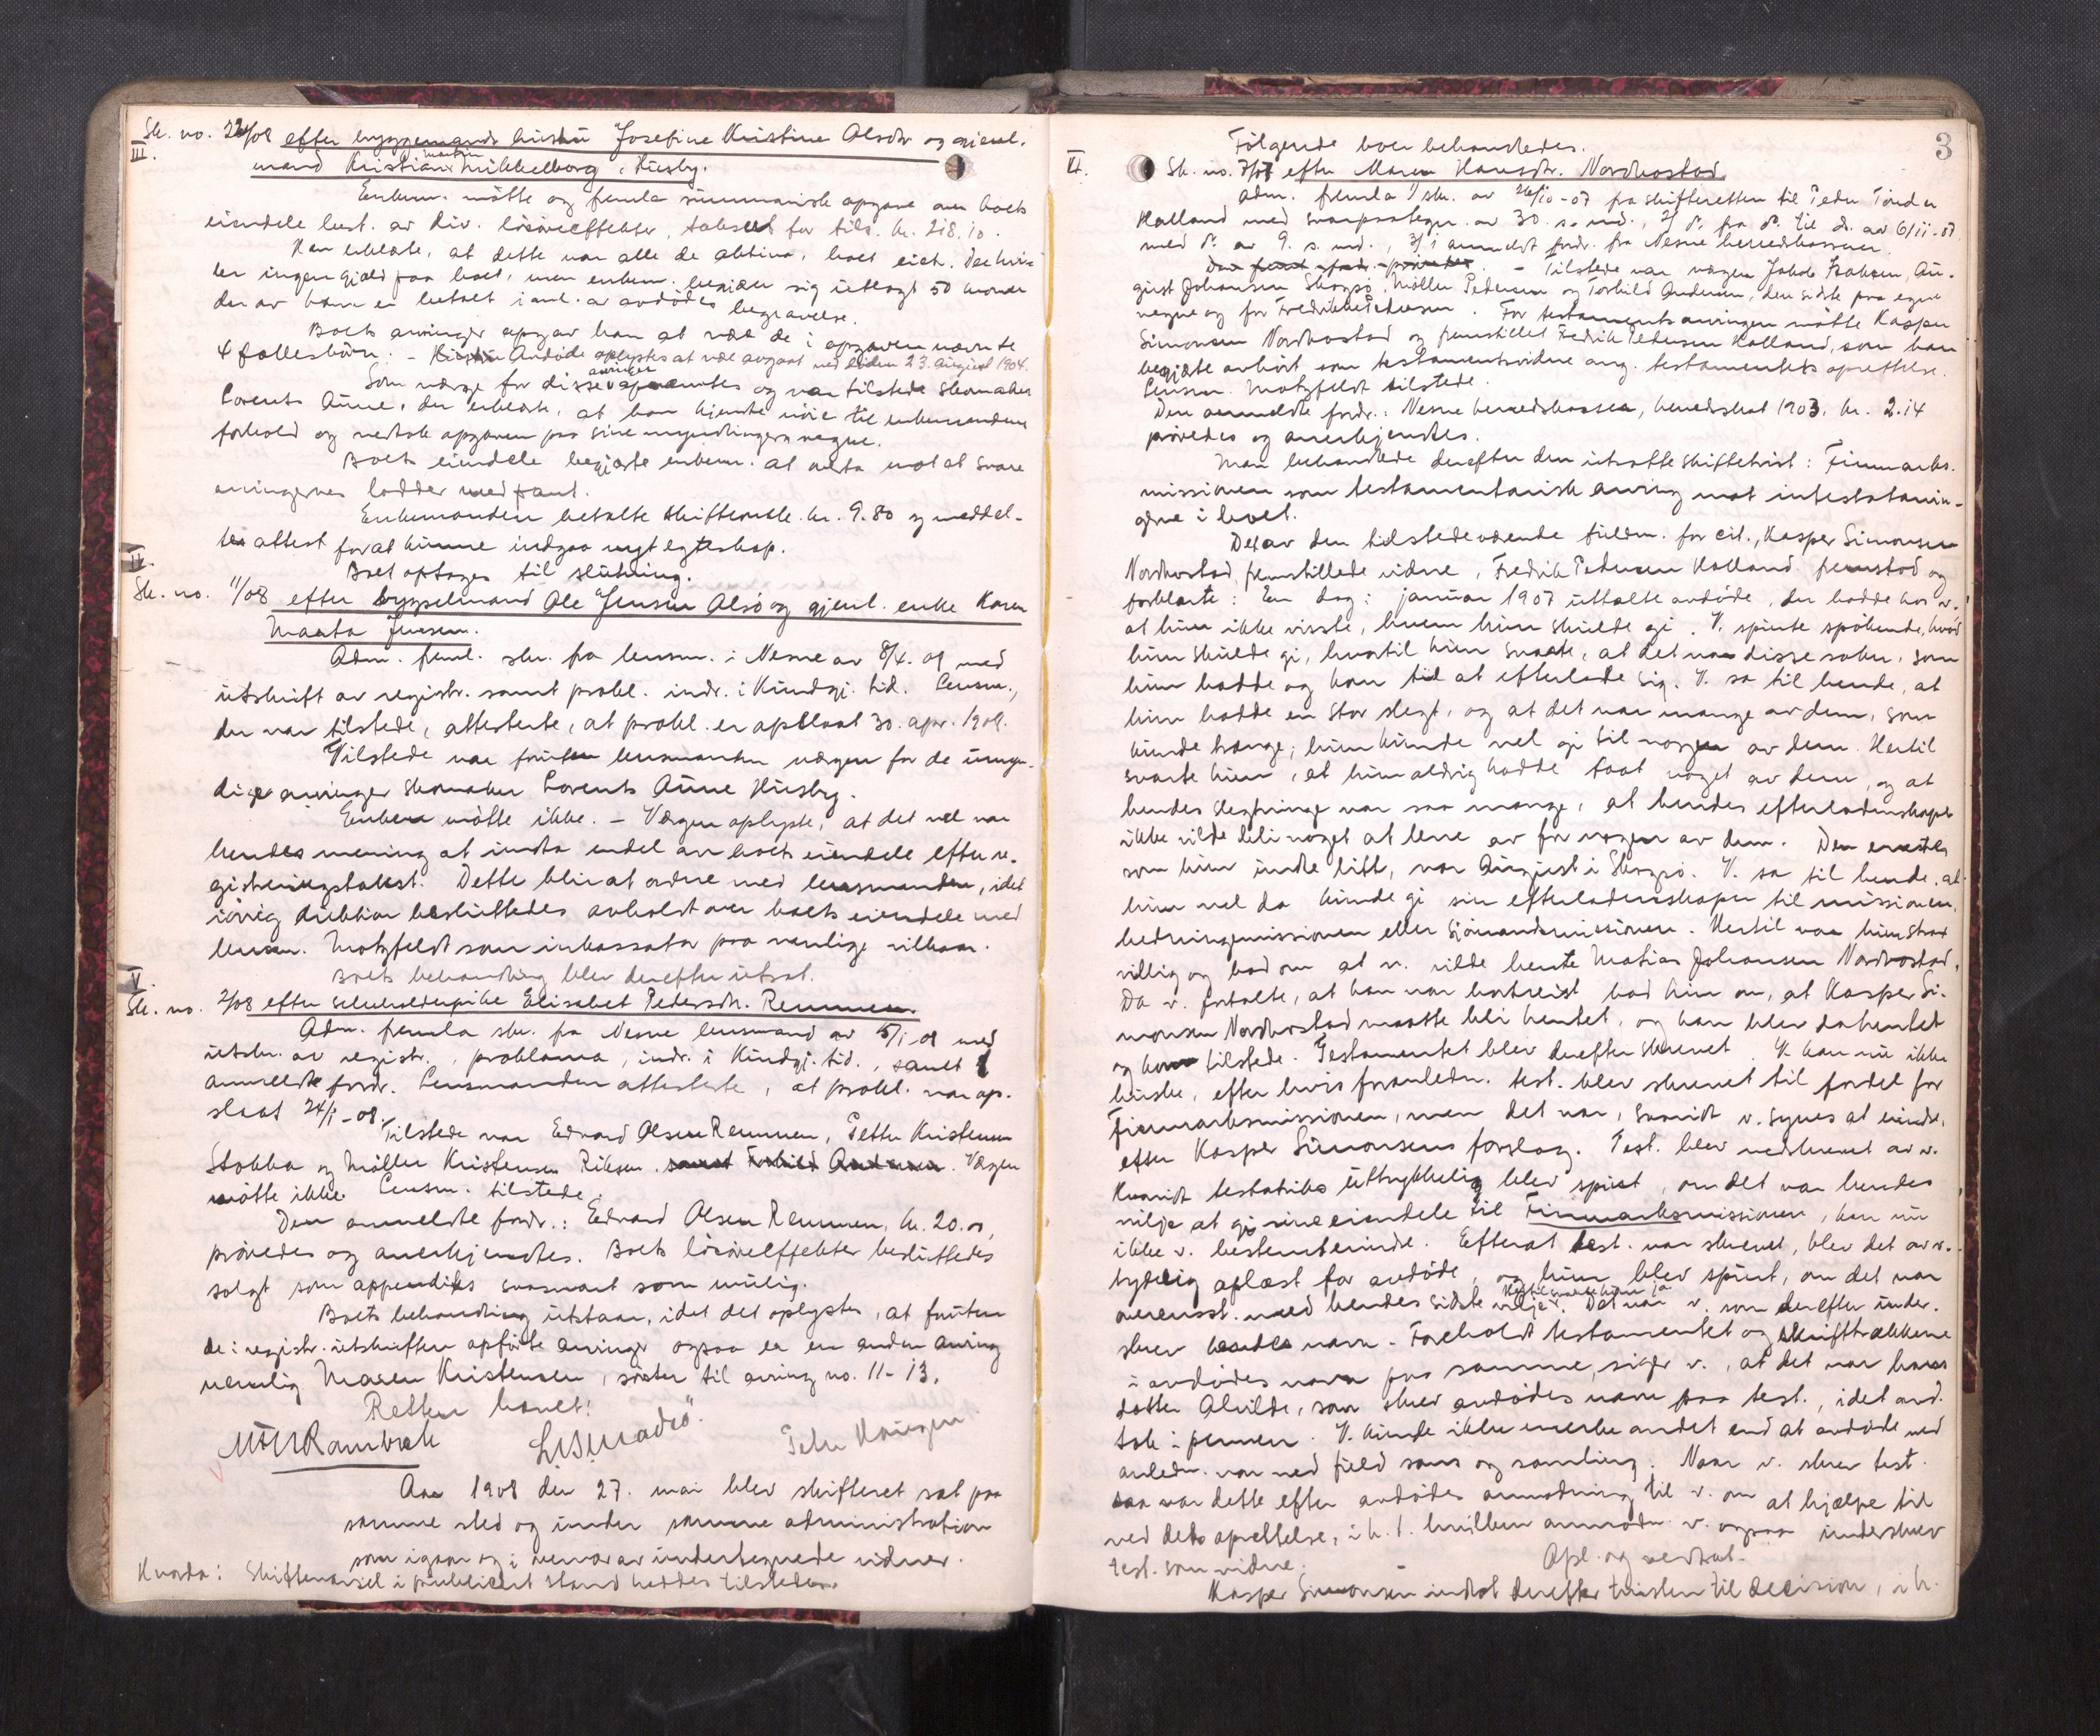 Sk. no. 22/08 efter byggemands hustru Josefine Kristine Olsdr. og gjenl.
III.
martin
mand Kristian Mikkelborg, Husby.
Enkem. mötte og fremla summarisk opgave over boets
eiendele best. av div. lösöreeffekter, taksert for tils. kr. 218.10.
Han erklærte, at dette var alle de aktiva, boet eiet. Der hvi-
ler ingen gjæld paa boet, men enkem. begjærer sig utlagt 50 kroner
der av ham er betalt i anl. av avdødes begravelse.
Boets arvinger opgav han at være de i opgaven nævnte
4 fællesbörn. - Avdöde oplystes at være avgaat ved döden 23. august 1904.
arvinger
Som værge for disse opnævntes og var tilstede skomaker
Lorents Aune, der erklærte, at han kjendte nöie til enkemandens
forhold og vedtok opgaven paa sine myndlingers vegne.
Boets eiendele begjærte enkem. at overta mot at svare
arvingernes lodder med pant.
Enkemanden betalte skifteomk. kr. 9.80 og meddel-
tes attest for at kunne indgaa nyt egteskap.
Boet optages til slutning.
Sk. no. 11/08 efter bygselmand Ole Jensen Alsö og gjenl. enke Karen
Marta Jensen.
Adm. freml. skr. fra lensm. i Nesne av 8/4. 08 med
utskrift av registr. samt prokl. indr. i Kundgj. tid. Lensm.,
der var tilstede, attesterte, at prokl. er opslaat 30. apr. 1908.
Tilstede var foruten lensmanden værgen for de umyn-
dige arvinger skomaker Lorents Aune Husby.
Enken mötte ikke. - Værgen oplyste, at det vel var
hendes mening at indta endel av boets eiendele efter re-
gistreringstakst. Dette blir at ordne med lensmanden, idet
iövrig auktion besluttedes avholdt over boets eiendele med
lensm. Motzfeldt som inkassator paa vanlige vilkaar.
Boets behandling blev derefter utsat.
V.
Sk. no. 2/08 efter selvholderpike Elisabet Pedersdr. Remmen.
Adm. fremla skr. fra Nesne lensmand av 15/1-08 med
utskr. av registr., proklama, indr. i Kundgj. tid., samt 1
anmeldt fordr. Lensmanden attesterte, at prokl. var op-
slaat 24/1-08.
Tilstede var Edvard Olsen Remmen, Petter Kristensen
Stokka og Möller Kristensen Riksen samt Torkild Andersen. Værgen
mötte ikke. Lensm. tilstede.
Den anmeldte fordr.: Edvard Olsen Remmen, kr. 20.00,
prövedes og anerkjendtes. Boets lösöreeffekter besluttedes
solgt som appendiks snarest som mulig.
Boets behandling utstaar, idet det oplystes, at foruten
de i registr. utskriften opförte arvinger ogsaa er en anden arving
nemlig Maren Kristensen, söster til arving no. 11-13.
Retten hævet:
Aar 1908 den 27. mai blev skifteret sat paa
samme sted og under samme administration
som igaar og i nærvær av undertegnede vidner.
Hvorda: Skiftevarsel i publicert stand haddes tilstede.
3
Følgende boer behandledes.
VI.
Sk. no. 7/07 efter Maren Hansdr. Nordkostad.
Adm. fremla 1/ skr. av 26/10-07 fra skifteretten til Peder Tönder
Kalland med svarpaategn. av 30. s. md., 2/ do. fra do. til do. av 6/11-07
med do. av 9. s. md., 3/ 1 anmeldt fordr. fra Nesne herredskasserer.
- Tilstede var værgen Jakob Isaksen, Au-
gust Johansen Skogsö, Möller Pedersen og Torkild Andersen, den sidste paa egne
vegne og for Fredrikke Pedersen. For testamentsarvingen mötte Kasper
Simonsen Nordkostad og fremstillet Fredrik Pedersen Kalland, som han
begjærte avhört som testamentsvidne ang. testamentets oprettelse.
Lensm. Motzfeldt tilstede.
Den anmeldte fordr.: Nesne herredskasse, herredskat 1903. kr. 2.14
prövedes og anerkjendtes.
Man behandlede derefter den utsatte skiftetvist: Finmarks-
missionen som testamentarisk arving mot intestatarvin-
gerne i boet.
Det av den tilstedeværende fuldm. for cit., Kasper Simonsen
Nordkostad, fremstillede vidne, Fredrik Pedersen Kalland fremstod og
forklarte: En dag i januar 1907 uttalte avdöde, der bodde hos v.,
at hun ikke visste, hvem hun skulde gi. V. spurte spökende, hvad
hun skulde gi, hvortil hun svarte, at det var disse saker, som
hun hadde og kom til at efterlade sig. V. sa til hende, at
hun hadde en stor slegt, og at det var mange av dem, som
kunde trænge; hun kunde vel gi til nogen av dem. Hertil
svarte hun, at hun aldrig hadde faat noget av dem, og at
hendes slegtninge var saa mange, at hendes efterladenskaper
ikke vilde bli noget at leve av for nogen av dem. Den eneste,
som hun undte litt, var August i Skogsö. V. sa til hende, at
hun vel da kunde gi sin efterladenskaper til missionen,
hedningemissionen eller sjömandsmissionen. Hertil var hun strax
villig og bad om at v. vilde hente Matias Johansen Nordkostad.
Da v. fortalte, at han var bortreist bad hun om, at Kasper Si-
monsen Nordkostad maatte bli hentet, og han blev da hentet
og kom tilstede. Testamentet blev derefter skrevet. V. kan nu ikke
huske, efter hvis foranledn. test. blev skrevet til fordel for
Finmarksmissionen, men det var, savidt v. synes at minde,
efter Kasper Simonsens forslag. Test. blev nedskrevet av v.
Hvorvidt testatriks uttrykkelig blev spurt, om det var hendes
vilje at gi sine eiendele til Finmarksmissionen, kan nu
ikke v. bestemt erindre. Efterat test. var skrevet, blev det av v.
tydelig oplæst for avdöde, og hun blev spurt, om det var
Hertil svarte hun ja
overensst. med hendes sidste vilje. Det var v. som derefter under-
skrev hendes navn. - Foreholdt testamentet og skrifttrækkene
i avdödes navn paa samme, siger v., at det var hans
datter Alvilde, som skrev avdödes navn paa test., idet avd.
tok i pennen. V. kunde ikke merke andet end at avdöde ved
anledn. var ved fuld sans og samling. Naar v. skrev test.
saa var dette efter avdödes anmodning til v. om at hjælpe til
ved dets oprettelse, i h. t. hvilken anmodn. v. ogsaa underskrev
test. som vidne. - Opl. og vedtat.
Kasper Simonsen indlot derefter tvisten til decision, i h.